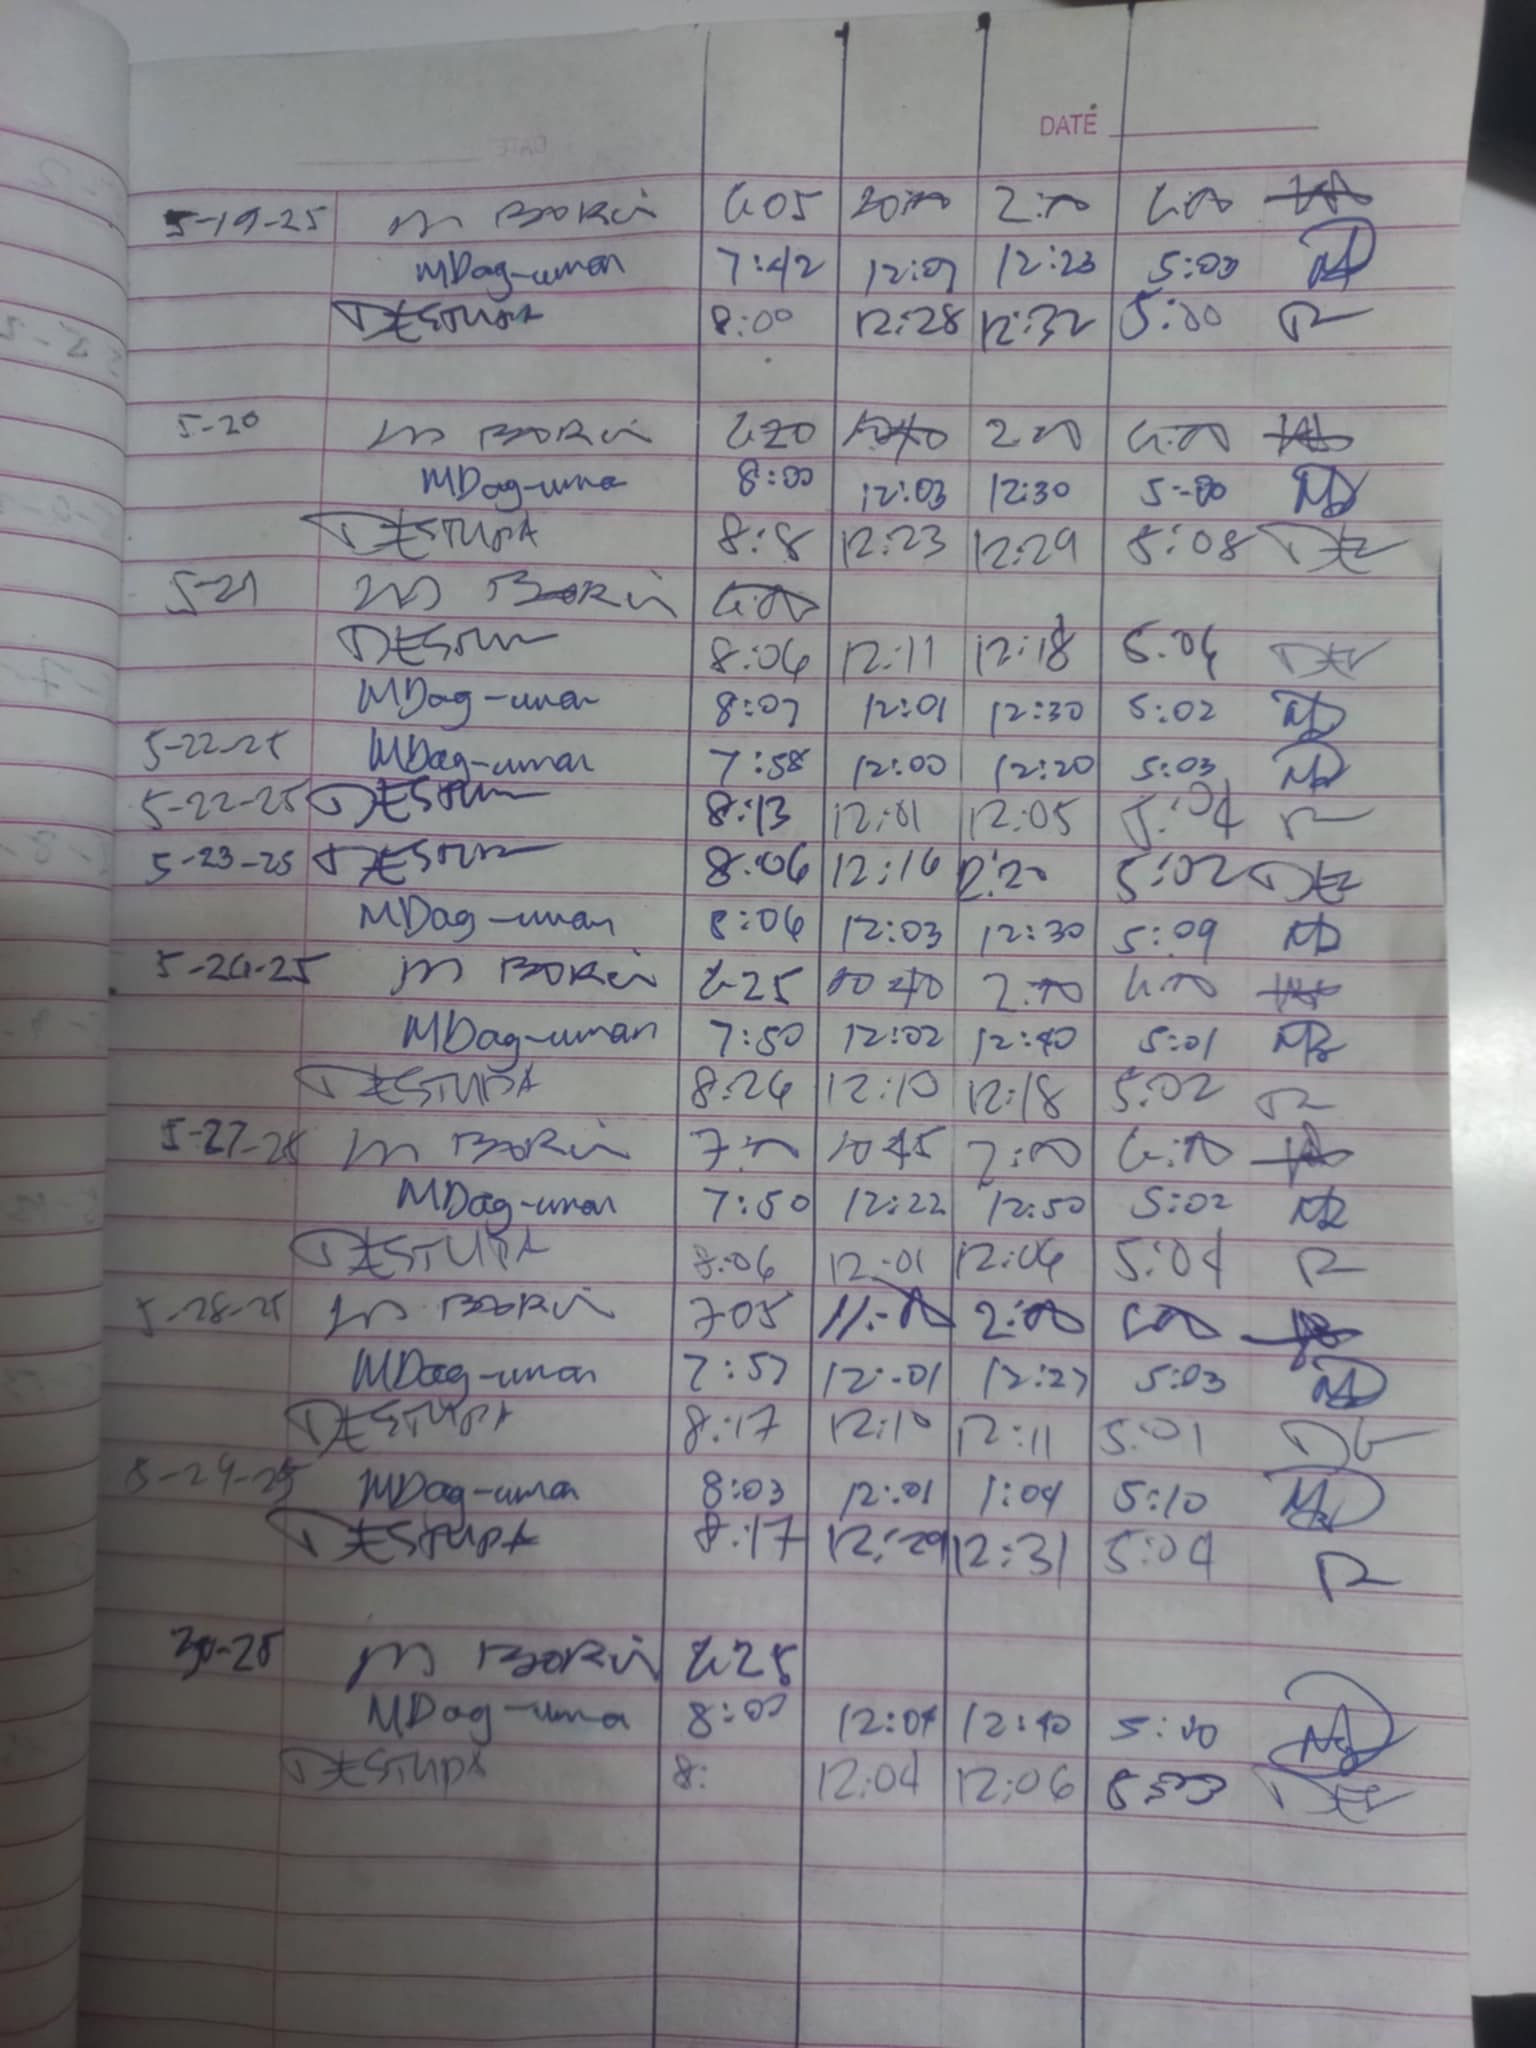 DATE
5-19-25 M BORCi 6:05 10:00 2:00 6:00
MDag-uman 7:42 12:07 12:23 5:03 MD
DESTUPA 8:00 12:28 12:32 5:00
5-20 M BORCi 6:20 10:40 2:00 6:00
MDag-uma 8:00 12:03 12:30 5:00 MD
DESTUPA 8:8 12:23 12:29 5:08 DE
5-21 M BORCi 6:00
DESTUPA 8:06 12:11 12:18 5:06 DE
MDag-uman 8:07 12:01 12:30 5:02 MD
5-22-25 MDag-uman 7:58 12:00 12:20 5:03 MD
5-22-25 DESTUPA 8:13 12:01 12:05 5:04
5-23-25 DESTUPA 8:06 12:16 12:20 5:02 DE
MDag-uman 8:06 12:03 12:30 5:09 MD
5-26-25 M BORCi 6:25 10 40 2:00 6:00
MDag-uman 7:50 12:02 12:40 5:01 MD
DESTUPA 8:26 12:10 12:18 5:02
5-27-25 M BORCi 7:00 10 45 2:00 6:00
MDag-uman 7:50 12:22 12:50 5:02 MD
DESTUPA 8:06 12:01 12:06 5:04
5-28-25 M BORCi 705 11:00 2:00 6:00
MDag-uman 7:57 12:01 12:27 5:03 MD
DESTUPA 8:17 12:10 12:11 5:01 DE
5-29-25 MDag-uman 8:03 12:01 1:04 5:10 MD
DESTUPA 8:17 12:29 12:31 5:04
30-25 M BORCi 6:25
MDag-uma 8:00 12:04 12:40 5:00 MD
DESTUPA 8: 12:04 12:06 DE